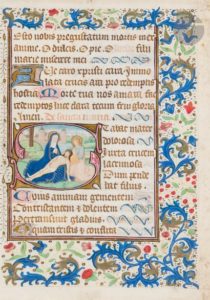 Sto nobis pregustatum mortis in ex
amine. O dulcis. O pie. O fili
marie miserere mei
Ave caro xpristi cara. Immo
lata crucis ara pro redemptis
hostia Morte tua nos amara fac
redemptos luce clara tecum frui gloria
Amen.
Stabat mater
dolorosa
Iuxta crucem
lacrimosa
Dum pende
bat filius
Cuius animam gementem
Contristantem et dolentem
Pertransivit gladius
O quam tristis et